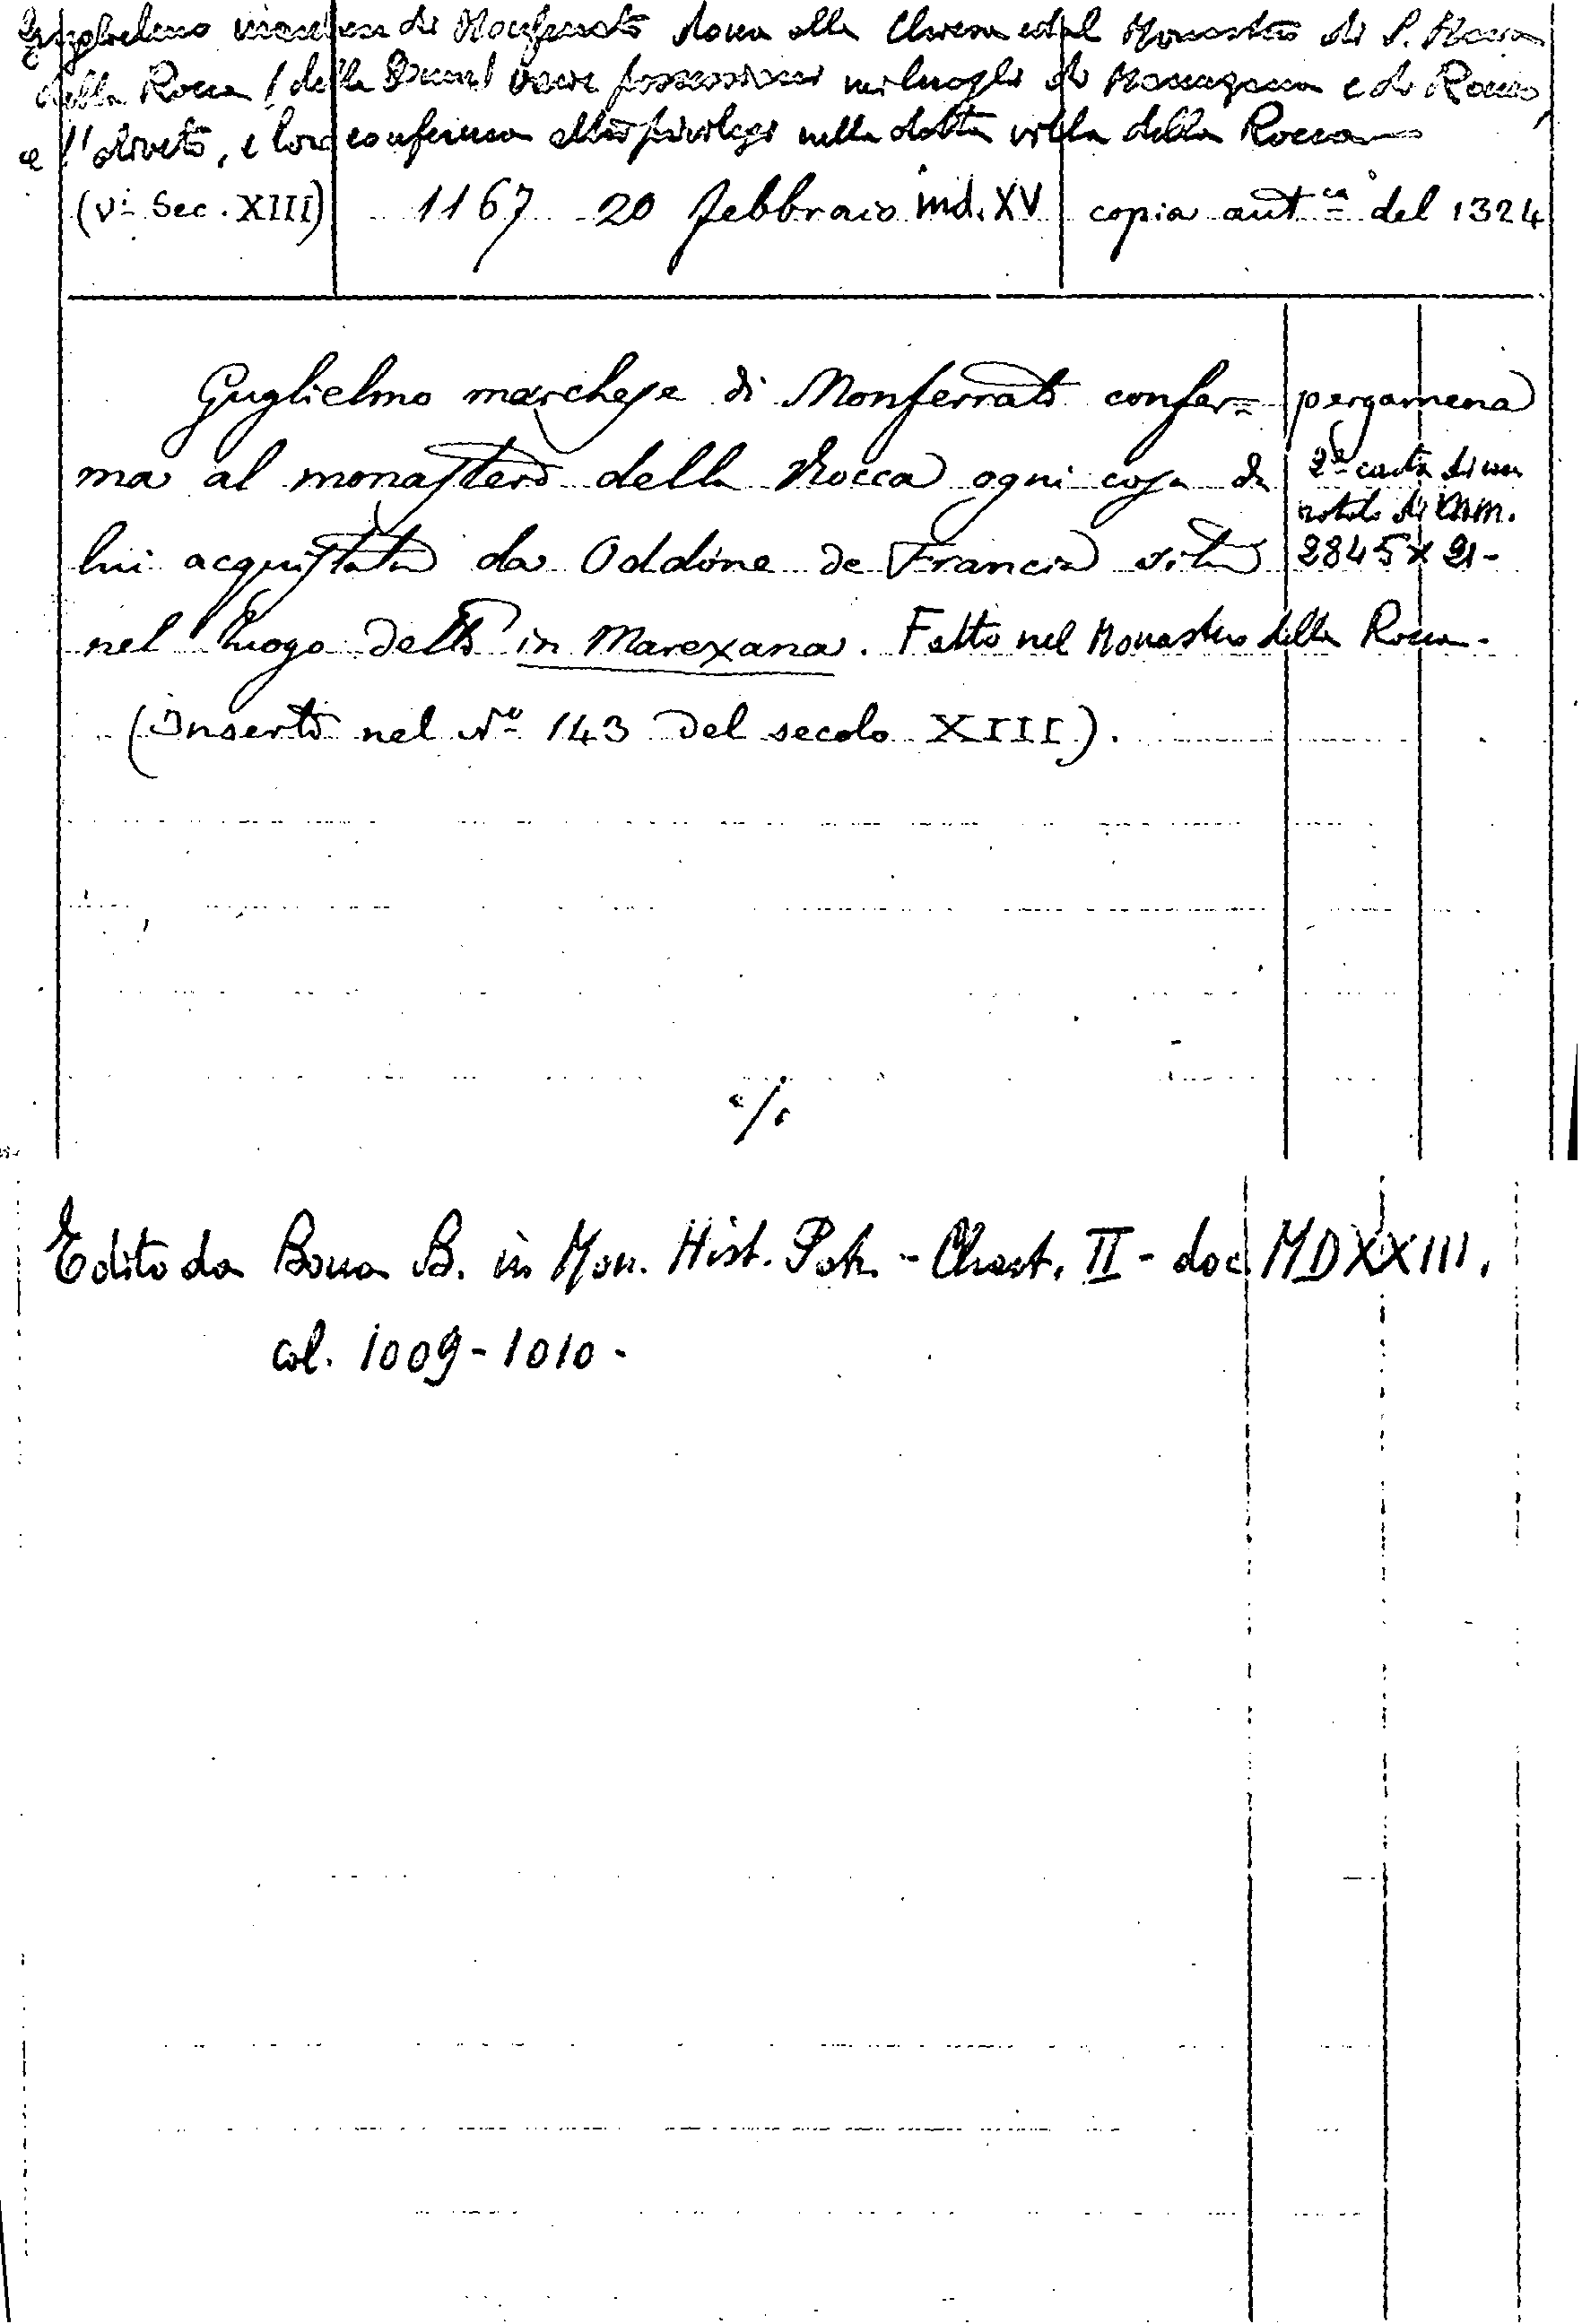 Guglielmo marchese di Monferrato dona alla Chiesa ed al Monastero di S. Maria
della Rocca (delle Donne) varie possessioni nei luoghi di e di
e l'oliveto, e loro conferma altri privilegi nella detta villa della Rocca
(Vi. Sec. XIII) 1167 20 febbraio ind. XV copia aut.ca del 1324
Guglielmo marchese di Monferrato confer= pergamena
ma al monastero della Rocca ogni cosa da 2a carta di un
rotolo di mm.
lui acquistata da Oddone de Francia sita 2845 x 21-
nel luogo detto in Marexana. Fatto nel Monastero della Rocca.
(Inserto nel No 143 del secolo XIII).
./.
Edito da Bona B. in Mon. Hist. Patr. - Chart. II - doc MDXXIII.
col. 1009-1010-